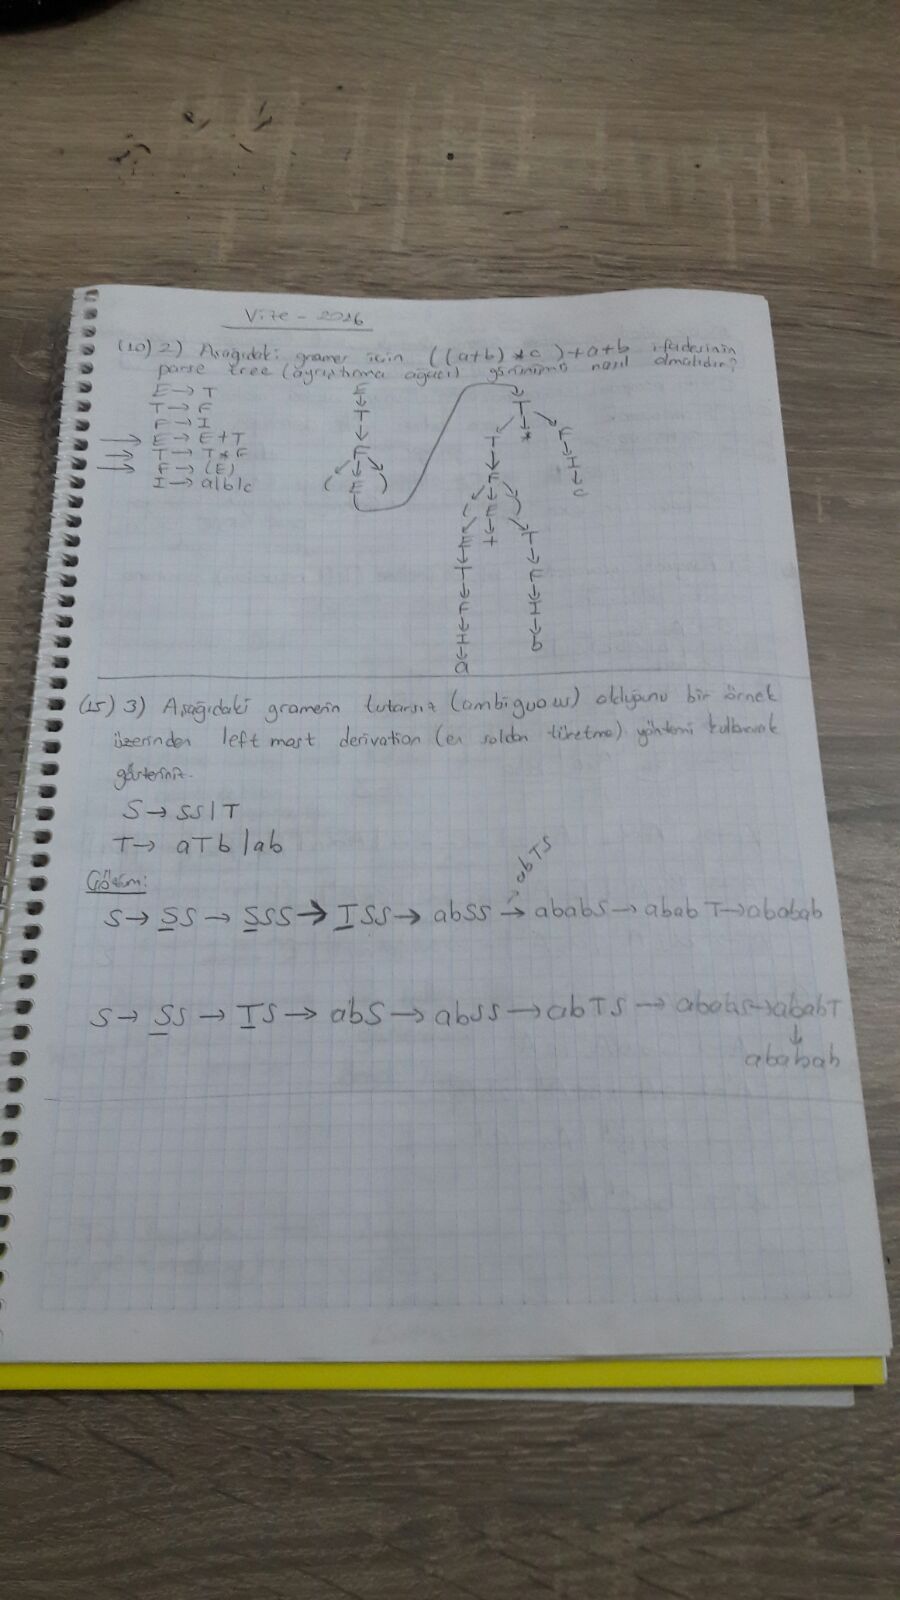 Vize - 2016
(10) 2) Aşağıdaki gramer için ((a+b)*c)+a+b ifadesinin
parse tree (ayrıştırma ağacı) görünümü nasıl olmalıdır?
E → T
T → F
F → I
→ E → E+T
→ T → T*F
→ F → (E)
I → a|b|c
E
T
F
( E )
T
T * F
F I
( E ) c
E + T
T F
F I
I b
a
(15) 3) Aşağıdaki gramerin tutarsız (ambiguous) olduğunu bir örnek
üzerinden left most derivation (en soldan türetme) yöntemi kullanarak
gösteriniz.
S → SS|T
T → aTb|ab
Çözüm:
abTS
S → SS → SSS → TSS → abSS → ababS → ababT → ababab
S → SS → TS → abS → abSS → abTS → ababS → ababT
↓
ababab